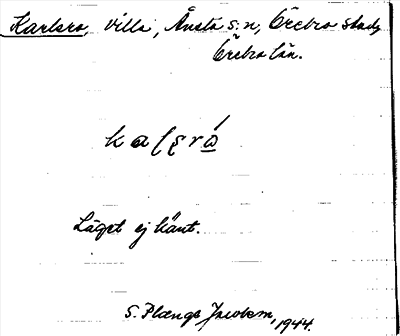 Karlsro, villa, Ånsta s:n, Örebro stad,
Örebro län.
Läget ej känt.
S. Plængs Jacobsen, 1944.